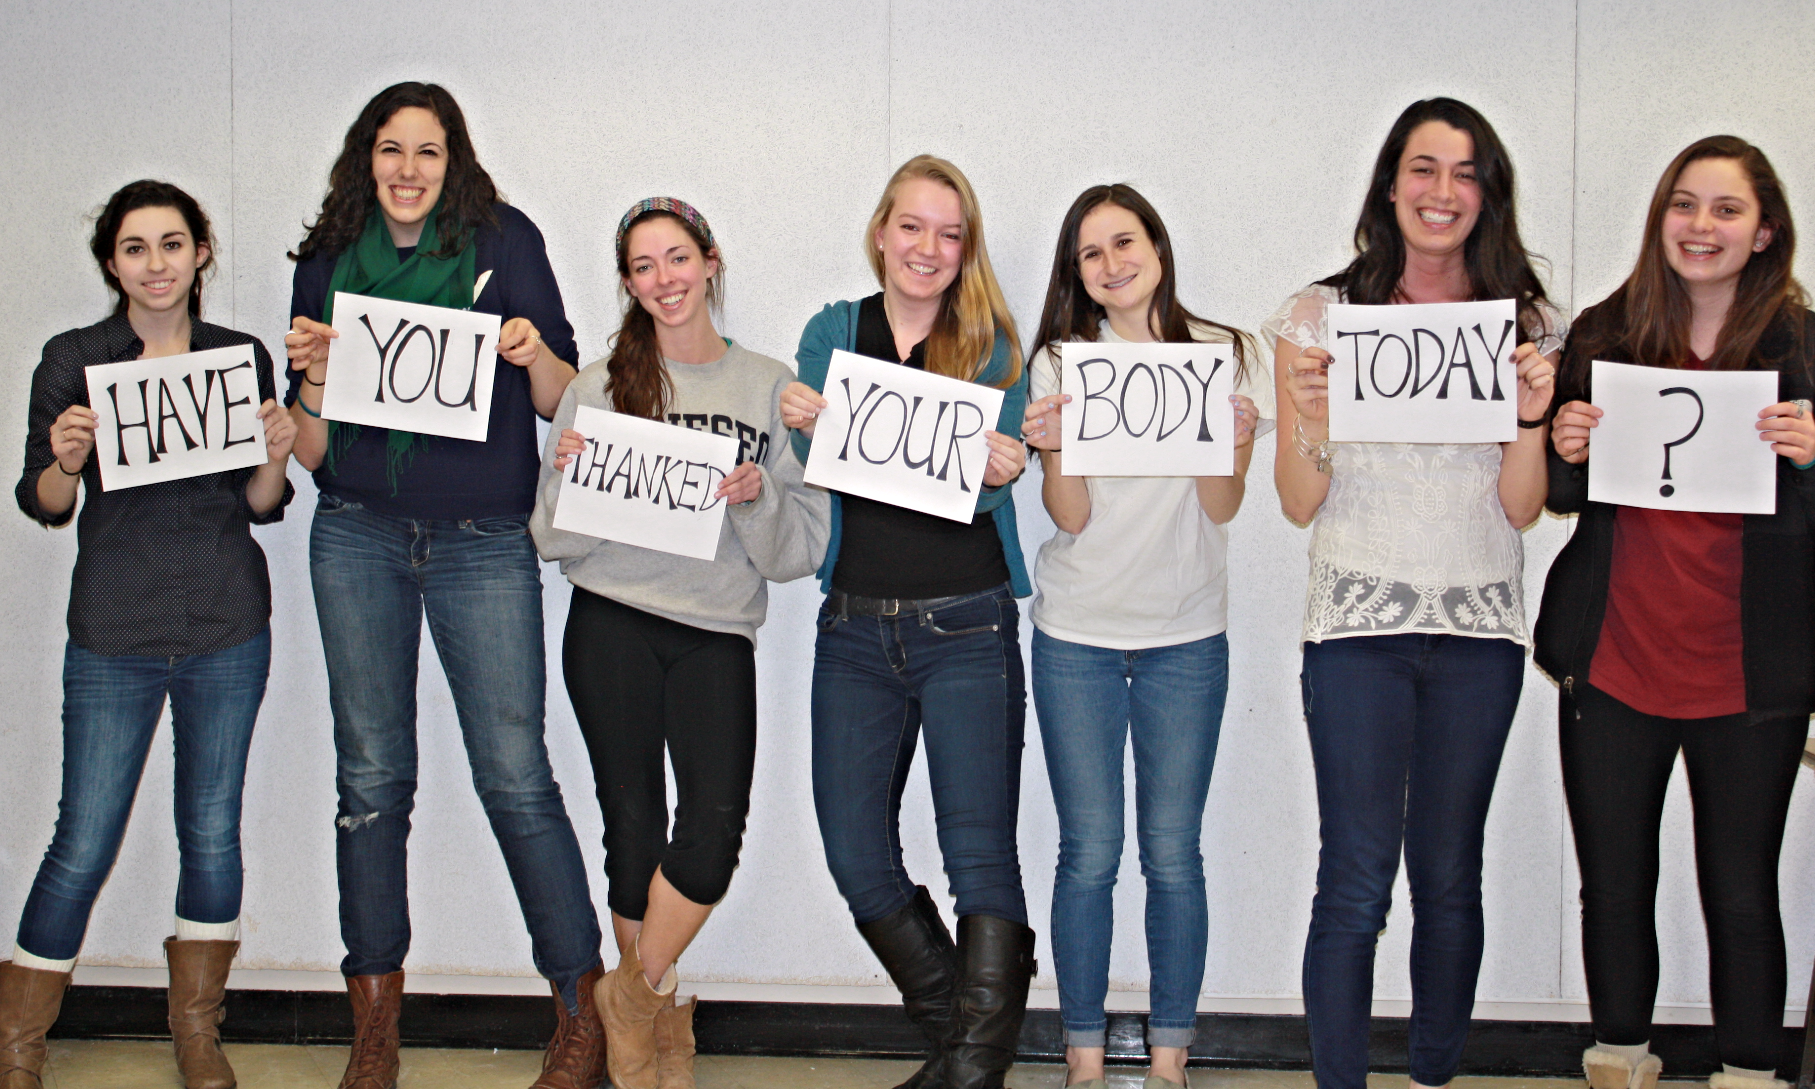 HAVE YOU THANKED YOUR BODY TODAY ?